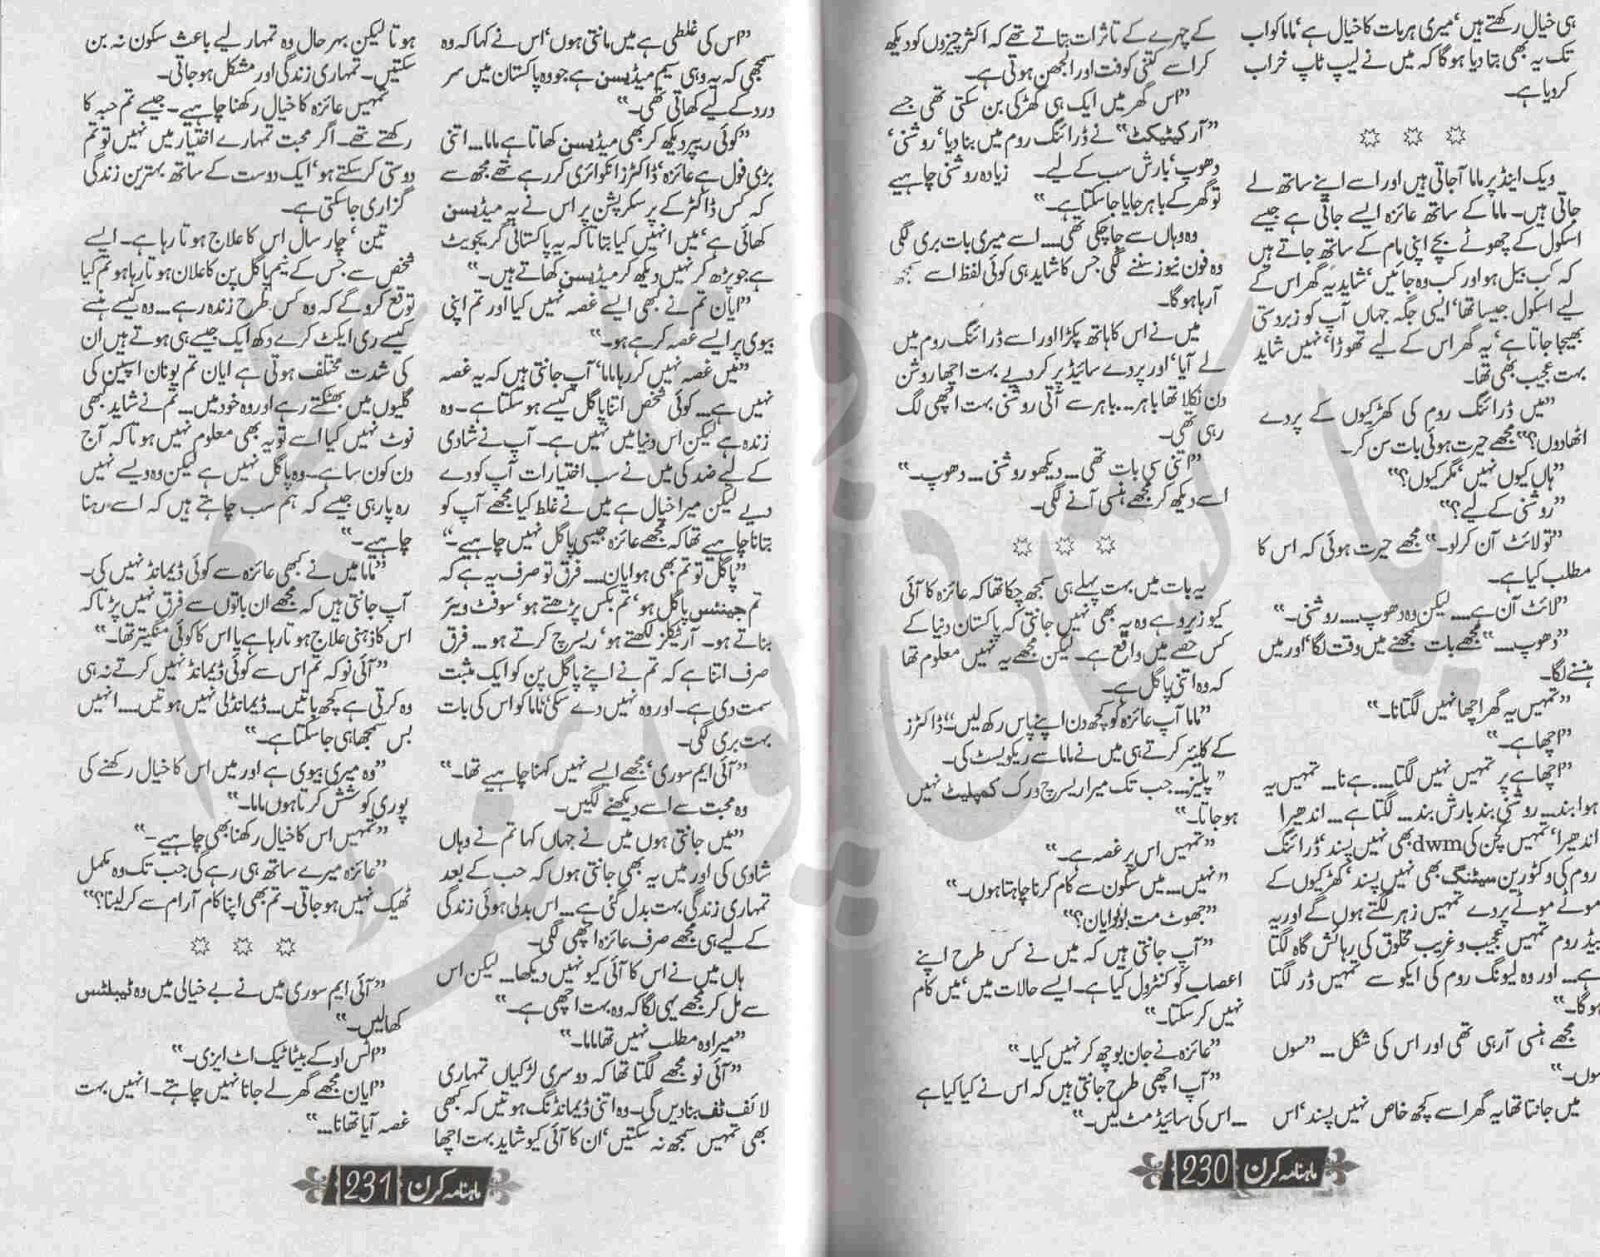 ہی خیال رکھتے ہیں‘ میری ہر بات کا خیال ہے‘ ماما کو اب
تک یہ بھی بتا دیا ہو گا کہ میں نے لیپ ٹاپ خراب
کر دیا ہے۔
ویک اینڈ پر ماما آ جاتی ہیں اور اسے اپنے ساتھ لے
جاتی ہیں۔ ماما کے ساتھ عائزہ ایسے جاتی ہے جیسے
اسکول کے چھوٹے بچے اپنی مام کے ساتھ جاتے ہیں
کہ کب بیل ہو اور کب وہ جائیں‘ شاید یہ گھر اس کے
لیے اسکول جیسا تھا‘ ایسی جگہ جہاں آپ کو زبردستی
بھیجا جاتا ہے‘ یہ گھر اس کے لیے تھوڑا‘ نہیں شاید
بہت عجیب بھی تھا۔
”میں ڈرائنگ روم کی کھڑکیوں کے پردے
اٹھا دوں؟“ مجھے حیرت ہوئی بات سن کر۔
”ہاں کیوں نہیں‘ مگر کیوں؟“
”روشنی کے لیے؟“
”تو لائٹ آن کر لو۔“ مجھے حیرت ہوئی کہ اس کا
مطلب کیا ہے۔
”لائٹ آن ہے.... لیکن وہ دھوپ.... روشنی۔“
”دھوپ....“ مجھے بات سمجھنے میں وقت لگا‘ اور میں
ہنسنے لگا۔
”تمہیں یہ گھر اچھا نہیں لگتا نا۔“
”اچھا ہے۔“
”اچھا ہے پر تمہیں نہیں لگتا.... ہے نا... تمہیں یہ
ہوا بند... روشنی بند بارش بند... لگتا ہے... اندھیرا
اندھیرا‘ تمہیں کچن کی dwm بھی نہیں پسند‘ ڈرائنگ
روم کی وکٹورین سیٹنگ بھی نہیں پسند‘ کھڑکیوں کے
موٹے موٹے پردے تمہیں زہر لگتے ہوں گے اور یہ
بیڈ روم تمہیں عجیب و غریب مخلوق کی رہائش گاہ لگتا
ہے... اور وہ لیونگ روم کی ایکو سے تمہیں ڈر لگتا
ہو گا۔“
مجھے ہنسی آ رہی تھی اور اس کی شکل... ”سوں
سوں۔“
میں جانتا تھا یہ گھر اسے کچھ خاص نہیں پسند‘ اس
کے چہرے کے تاثرات بتاتے تھے کہ اکثر چیزوں کو دیکھ
کر اسے کتنی کوفت اور الجھن ہوتی ہے۔
”اس گھر میں ایک ہی کھڑکی بن سکتی تھی جسے
”آرکیٹیکٹ“ نے ڈرائنگ روم میں بنا دیا‘ روشنی‘
دھوپ‘ بارش سب کے لیے۔ زیادہ روشنی چاہیے
تو گھر کے باہر جایا جا سکتا ہے۔“
وہ وہاں سے جا چکی تھی.... اسے میری بات بری لگی
وہ فون نیوز سننے لگی جس کا شاید ہی کوئی لفظ اسے سمجھ
آ رہا ہو گا۔
میں نے اس کا ہاتھ پکڑا اور اسے ڈرائنگ روم میں
لے آیا‘ اور پردے سائیڈ پر کر دیے بہت اچھا روشن
دن نکلا تھا باہر... باہر سے آتی روشنی بہت اچھی لگ
رہی تھی۔
”اتنی سی بات تھی... دیکھو روشنی... دھوپ۔“
اسے دیکھ کر مجھے ہنسی آنے لگی۔
یہ بات میں بہت پہلے ہی سمجھ چکا تھا کہ عائزہ کا آئی
کیو زیرو ہے وہ یہ بھی نہیں جانتی کہ پاکستان دنیا کے
کس حصے میں واقع ہے۔ لیکن مجھے یہ نہیں معلوم تھا
کہ وہ اتنی پاگل ہے۔
”ماما آپ عائزہ کو کچھ دن اپنے پاس رکھ لیں۔“ ڈاکٹرز
کے کلیئر کرتے ہی میں نے ماما سے ریکویسٹ کی۔
”پلیز... جب تک میرا ریسرچ ورک کمپلیٹ نہیں
ہو جاتا۔“
”تمہیں اس پر غصہ ہے۔“
”نہیں... میں سکون سے کام کرنا چاہتا ہوں۔“
”جھوٹ مت بولو ایان؟“
”آپ جانتی ہیں کہ میں نے کس طرح اپنے
اعصاب کو کنٹرول کیا ہے۔ ایسے حالات میں‘ میں کام
نہیں کر سکتا۔“
”عائزہ نے جان بوجھ کر نہیں کیا۔“
”آپ اچھی طرح جانتی ہیں کہ اس نے کیا کیا ہے
۔۔۔ اس کی سائیڈ مت لیں۔“
ماہنامہ کرن 230
”اس کی غلطی ہے میں مانتی ہوں‘ اس نے کہا کہ وہ
سمجھی کہ یہ وہی سیم میڈیسن ہے جو وہ پاکستان میں سر
درد کے لیے کھاتی تھی۔“
”کوئی ریپر دیکھ کر بھی میڈیسن کھاتا ہے ماما... اتنی
بڑی فول ہے عائزہ‘ ڈاکٹرز انکوائری کر رہے تھے مجھ سے
کہ کس ڈاکٹر کے پرسکرپشن پر اس نے یہ میڈیسن
کھائی ہے‘ میں انہیں کیا بتاتا کہ یہ پاکستانی گریجویٹ
ہے جو پڑھ کر نہیں دیکھ کر میڈیسن کھاتے ہیں۔“
”ایان تم نے کبھی ایسے غصہ نہیں کیا اور تم اپنی
بیوی پر ایسے غصہ کر رہے ہو۔“
”میں غصہ نہیں کر رہا ماما‘ آپ جانتی ہیں کہ یہ غصہ
نہیں ہے... کوئی شخص اتنا پاگل کیسے ہو سکتا ہے۔ وہ
زندہ ہے لیکن اس دنیا میں نہیں ہے۔ آپ نے شادی
کے لیے ضد کی میں نے سب اختیارات آپ کو دے
دیے لیکن میرا خیال ہے میں نے غلط کیا مجھے آپ کو
بتانا چاہیے تھا کہ مجھے عائزہ جیسی پاگل نہیں چاہیے۔“
”پاگل تو تم بھی ہو ایان... فرق تو صرف یہ ہے کہ
تم جینئس پاگل ہو‘ تم بکس پڑھتے ہو‘ سوفٹ ویئر
بناتے ہو۔ آرٹیکلز لکھتے ہو‘ ریسرچ کرتے ہو... فرق
صرف اتنا ہے کہ تم نے اپنے پاگل پن کو ایک مثبت
سمت دی ہے۔ اور وہ نہیں دے سکی‘ ماما کو اس کی بات
بہت بری لگی۔
”آئی ایم سوری‘ مجھے ایسے نہیں کہنا چاہیے تھا۔“
وہ محبت سے اسے دیکھنے لگیں۔
”میں جانتی ہوں میں نے جہاں کہا تم نے وہاں
شادی کی اور میں یہ بھی جانتی ہوں کہ حب کے بعد
تمہاری زندگی بہت بدل گئی ہے... اس بدلی ہوئی زندگی
کے لیے ہی مجھے صرف عائزہ اچھی لگی۔
ہاں میں نے اس کا آئی کیو نہیں دیکھا... لیکن اس
سے مل کر مجھے یہی لگا کہ وہ بہت اچھی ہے۔“
”میرا وہ مطلب نہیں تھا ماما۔“
”آئی نو مجھے لگتا تھا کہ دوسری لڑکیاں تمہاری
لائف ٹف بنا دیں گی۔ وہ اتنی ڈیمانڈنگ ہوتیں کہ کبھی
بھی تمہیں سمجھ نہ سکتیں‘ ان کا آئی کیو شاید بہت اچھا
ہوتا لیکن بہرحال وہ تمہارے لیے باعث سکون نہ بن
سکتیں۔ تمہاری زندگی اور مشکل ہو جاتی۔
تمہیں عائزہ کا خیال رکھنا چاہیے۔ جیسے تم حبہ کا
رکھتے تھے۔ اگر محبت تمہارے اختیار میں نہیں تو تم
دوستی کر سکتے ہو‘ ایک دوست کے ساتھ بہترین زندگی
گزاری جا سکتی ہے۔
تین‘ چار سال اس کا علاج ہوتا رہا ہے۔ ایسے
شخص سے جس کے نیم پاگل پن کا علان ہوتا رہا ہو تم کیا
توقع کرو گے کہ وہ کس طرح زندہ رہے... وہ کیسے ہنسے
کیسے ری ایکٹ کرے دکھ ایک جیسے ہی ہوتے ہیں ان
کی شدت مختلف ہوتی ہے ایان تم یونان اسپین کی
گلیوں میں بھٹکتے رہے اور وہ خود میں... تم نے شاید کبھی
نوٹ نہیں کیا اسے تو یہ بھی معلوم نہیں ہوتا کہ آج
دن کون سا ہے۔ وہ پاگل نہیں ہے لیکن وہ ویسے نہیں
رہ پا رہی جیسے کہ ہم سب چاہتے ہیں کہ اسے رہنا
چاہیے۔“
”ماما میں نے کبھی عائزہ سے کوئی ڈیمانڈ نہیں کی۔
آپ جانتی ہیں کہ مجھے ان باتوں سے فرق نہیں پڑتا کہ
اس کا ذہنی علاج ہوتا رہا ہے یا اس کا کوئی منگیتر تھا۔“
”آئی نو کہ تم اس سے کوئی ڈیمانڈ نہیں کرتے نہ ہی
وہ کرتی ہے کچھ باتیں... ڈیمانڈلی نہیں ہوتیں.... انہیں
بس سمجھا ہی جا سکتا ہے۔“
”وہ میری بیوی ہے اور میں اس کا خیال رکھنے کی
پوری کوشش کرتا ہوں ماما۔“
”تمہیں اس کا خیال رکھنا بھی چاہیے۔“
”عائزہ میرے ساتھ ہی رہے گی جب تک وہ مکمل
ٹھیک نہیں ہو جاتی۔ تم بھی اپنا کام آرام سے کر لینا؟“
”آئی ایم سوری میں نے بے خیالی میں وہ ٹیبلٹس
کھا لیں۔“
”اٹس اوکے بیٹا ٹیک اٹ ایزی۔“
”ایان مجھے گھر لے جانا نہیں چاہتے۔ انہیں بہت
غصہ آیا تھا نا...“
ماہنامہ کرن 231